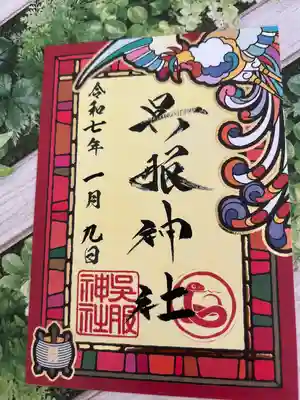 呉服神社
令和七年 一月 九日
呉服
神社